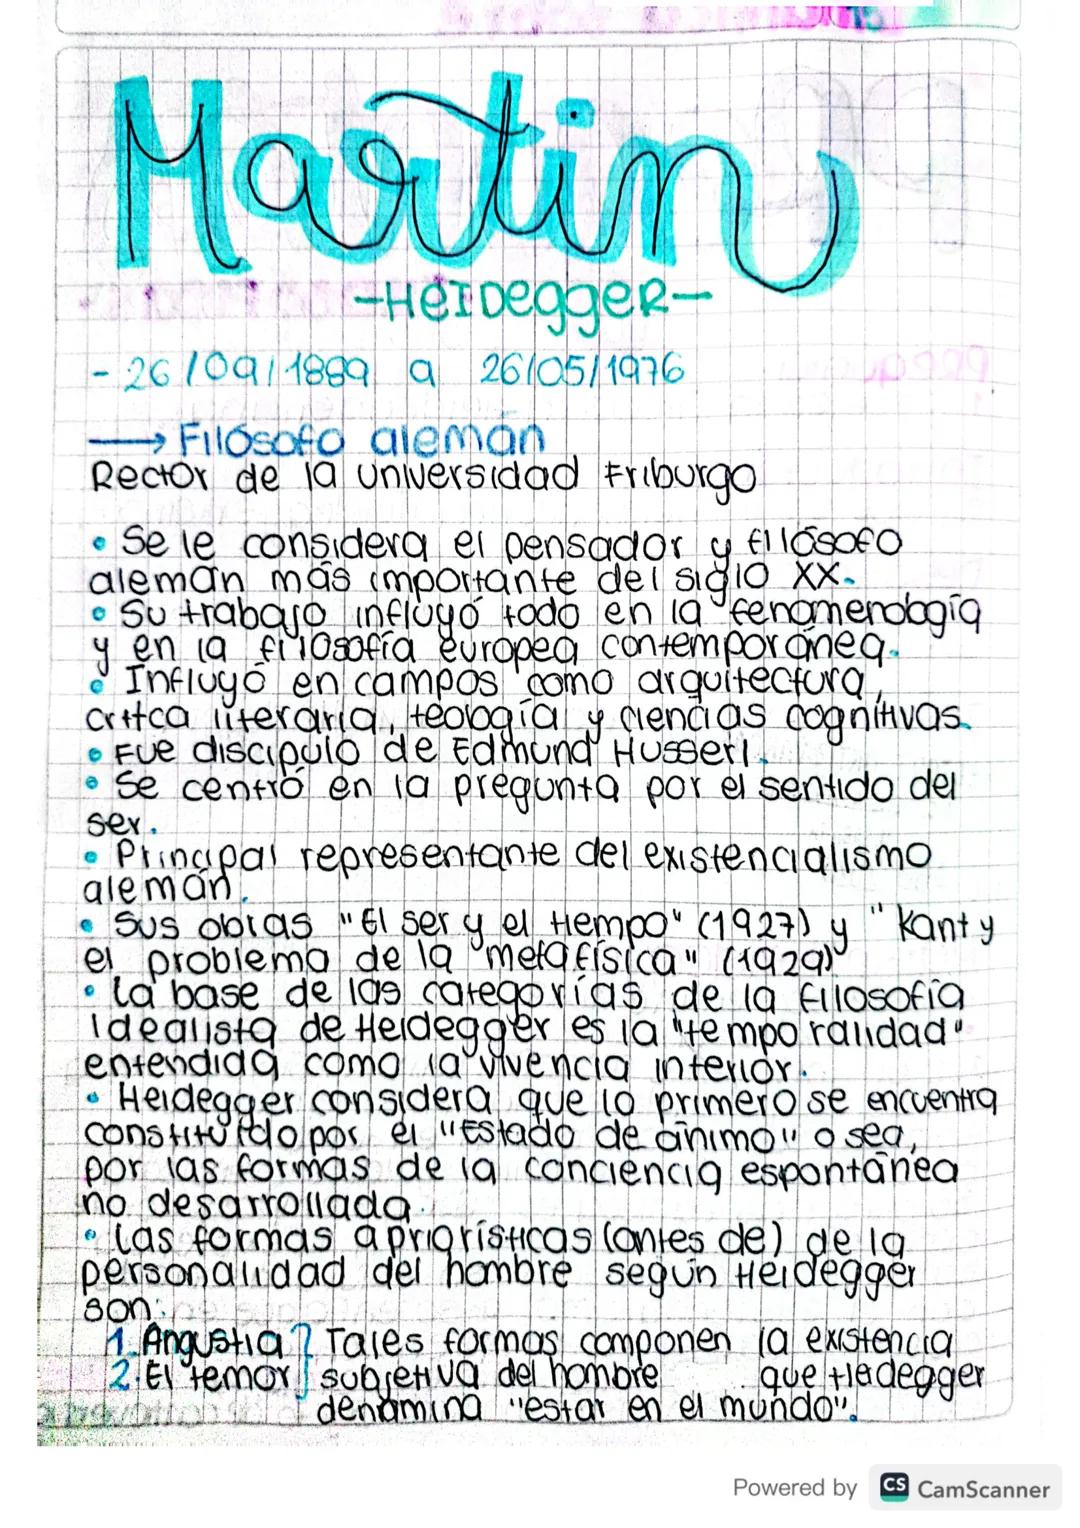 Martin
-HEIDeggeR-
- 26/09/1889 a 26/05/1976
→ Filósofo alemán
Rector de la universidad Friburgo
• Se le considera el pensador y filósofo
alemán más importante del siglo XX.
• Su trabajo influyó todo en la fenomenología
y en la filosofía europea contemporánea.
• Influyó en campos como arquitectura,
crítica literaria, teología y ciencias cognitivas.
• Fue discípulo de Edmund Husserl.
• Se centró en la pregunta por el sentido del
ser.
• Principal representante del existencialismo
alemán.
• Sus obras "El ser y el tiempo" (1927) y "Kant y
el problema de la metafísica" (1929)
• La base de las categorías de la filosofía
idealista de Heidegger es la "temporalidad"
entendida como la vivencia interior.
• Heidegger considera que lo primero se encuentra
constituido por el "Estado de ánimo" o sea,
por las formas de la conciencia espontánea
no desarrollada.
• Las formas apriorísticas (antes de) de la
personalidad del hombre según Heidegger
son:
1. Angustia } Tales formas componen la existencia
2. El temor } subjetiva del hombre que Heidegger
denomina "estar en el mundo".
Powered by CS CamScanner